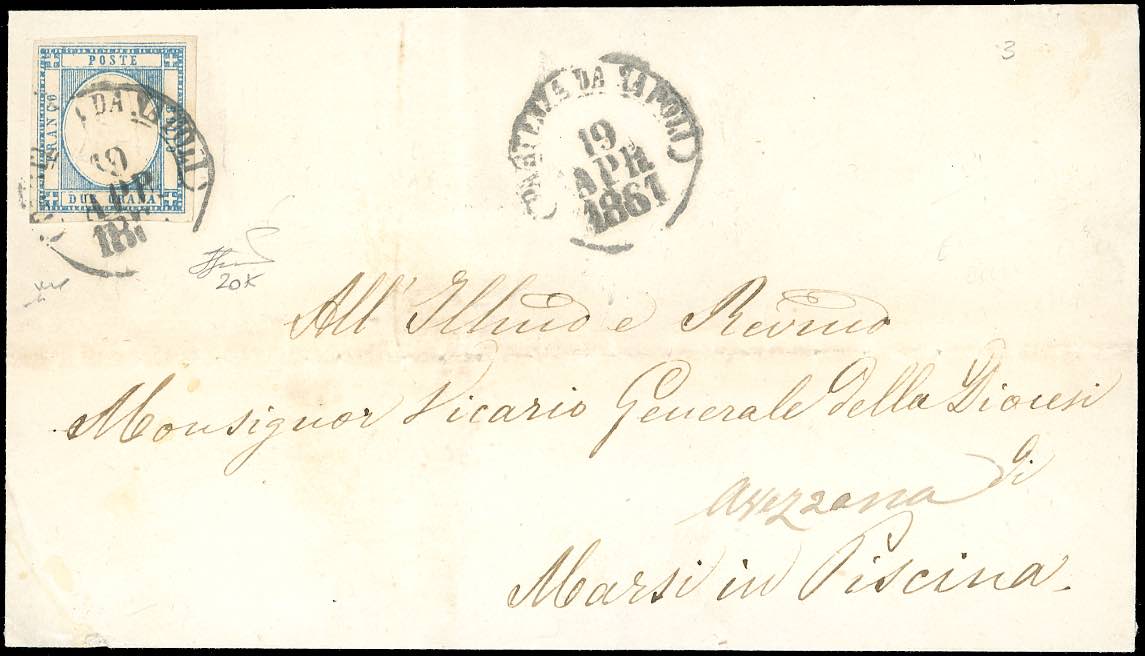 POSTE
FRANCO
DUE GRANA
DA NAPOLI
19
APR
(PARTENZA DA NAPOLI)
19
APR
1861
3
20K
All' Illmo e Revmo
Monsignor Vicario Generale della Diocesi
di
Avezzana
Marsi in Piscina.